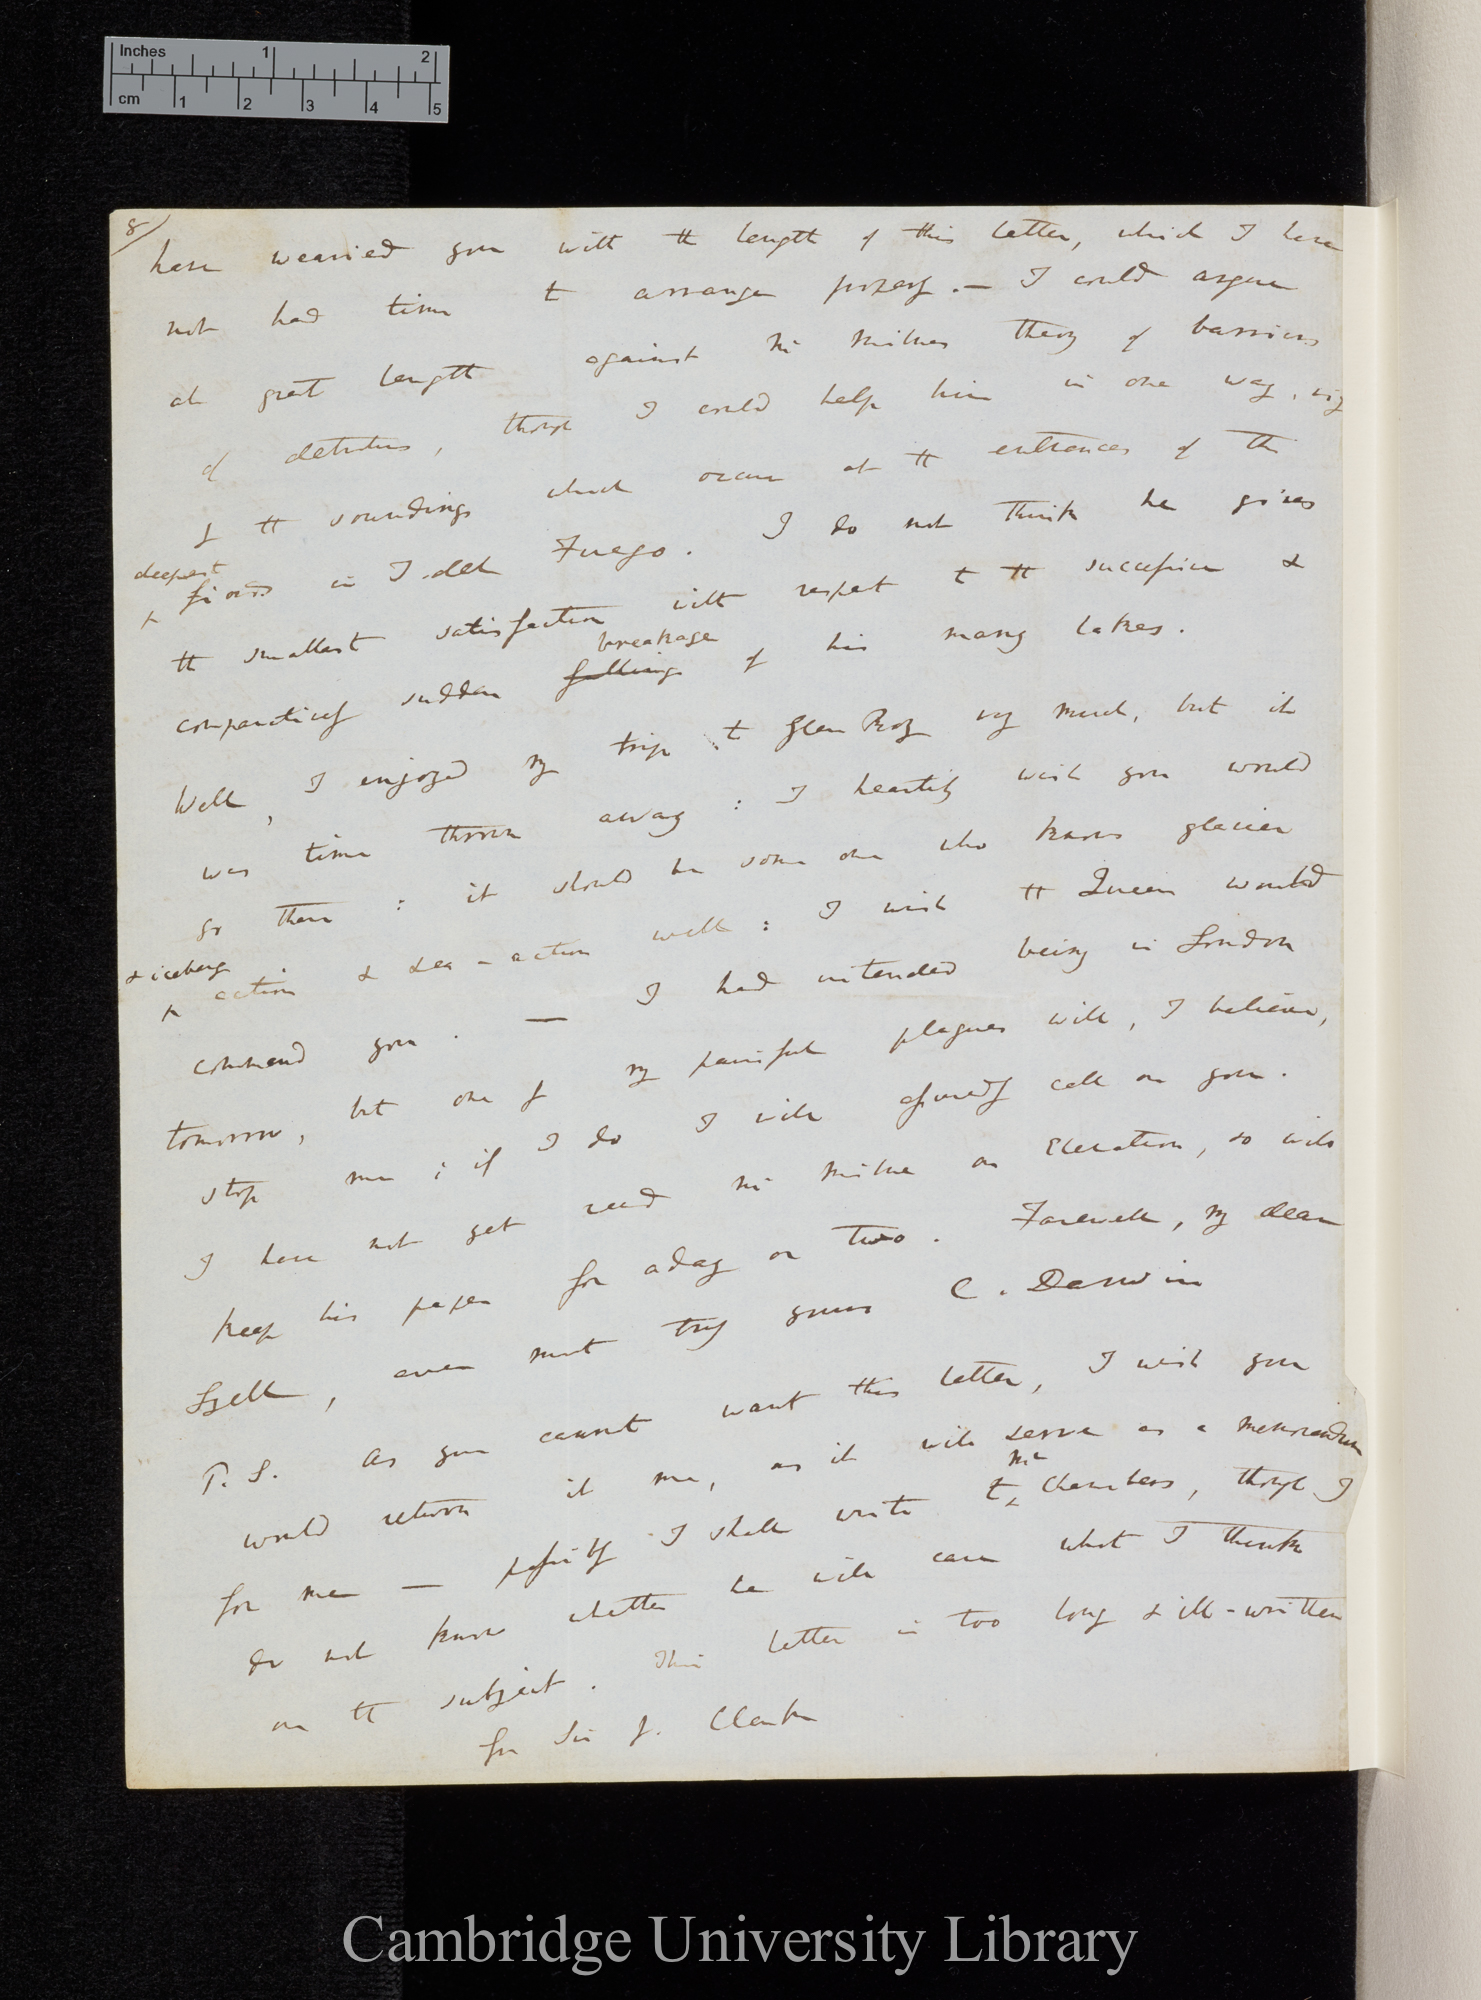 Inches 1 2
cm 1 2 3 4 5
8/
have wearied you with the length of this letter, which I have
not had time to arrange properly.— I could argue
at great length against Mr Milnes theory of barriers
of detritus, though I could help him in one way, viz
by the soundings which occur at the entrances of the
deepest
fiords in T. del Fuego. I do not think he gives
the smallest satisfaction with respect to the successive &
breakage
comparatively sudden falling of his many lakes.
Well, I enjoyed my trip to Glen Roy very much, but it
was time thrown away: I heartily wish you would
go there: it should be some one who knows glacier
& iceberg
action & sea-action well: I wish the Queen would
command you.— I had intended being in London
tomorrow, but one of my painful plagues will, I believe,
stop me; if I do I will assuredly call on you.
I have not yet read Mr Milne on Elevation, so will
keep his paper for a day or two. Farewell, my dear
Lyell, ever most truly yours C. Darwin
P.S. As you cannot want this letter, I wish you
would return it me, as it will serve as a memorandum
Mr
for me — possibly I shall write to Chambers, though I
do not know whether he will care what I think
on the subject. This letter is too long & ill-written
for Sir J. Clark
Cambridge University Library